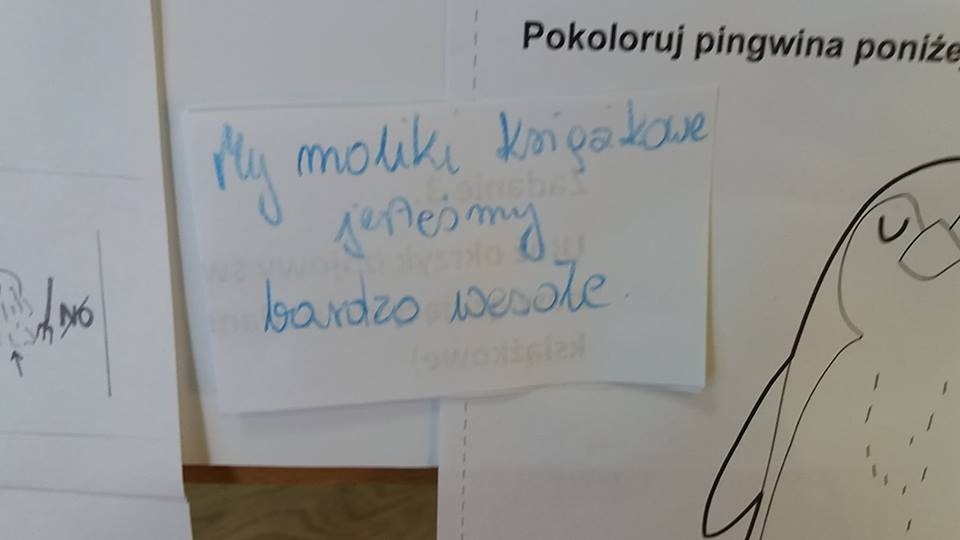 Pokoloruj pingwina poniżej
My moliki książkowe
jesteśmy
bardzo wesołe.